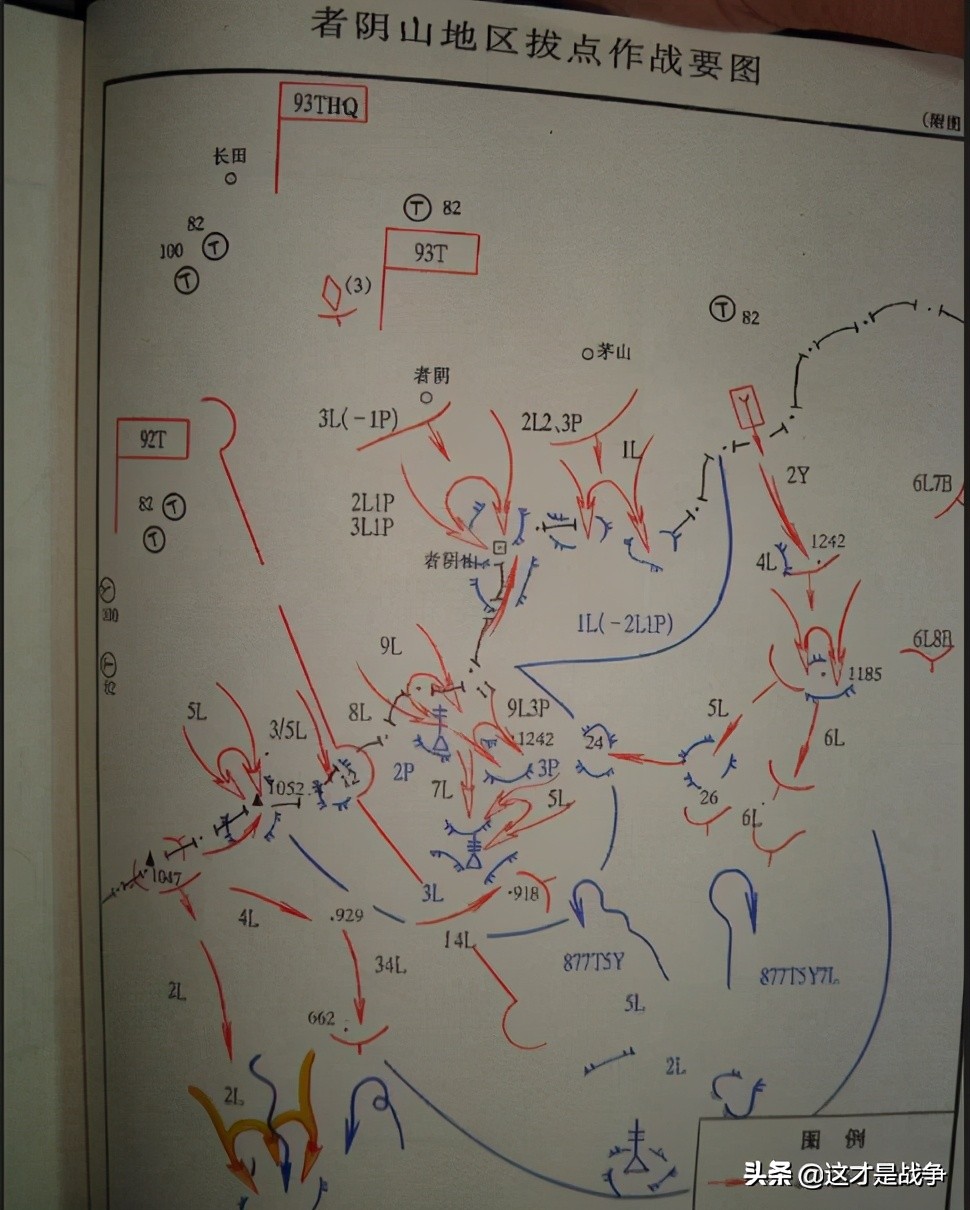 者阴山地区拔点作战要图
(附图
93THQ
长田
82
93T
82
100
(3)
82
茅山
者阴
3L(-1P)
2L2、3P
1L
92T
2Y
6L7B
2L1P
3L1P
82
1242
4L
者阴山
1L(-2L1P)
6L8B
9L
1185
5L
3/5L
8L
9L3P
5L
1242
24
6L
2P
3P
7L
12
1052
5L
26
6L
1047
3L
.918
4L
.929
14L
34L
877T5Y
877T5Y7L
2L
5L
662
2L
2L
图例
头条 @这才是战争